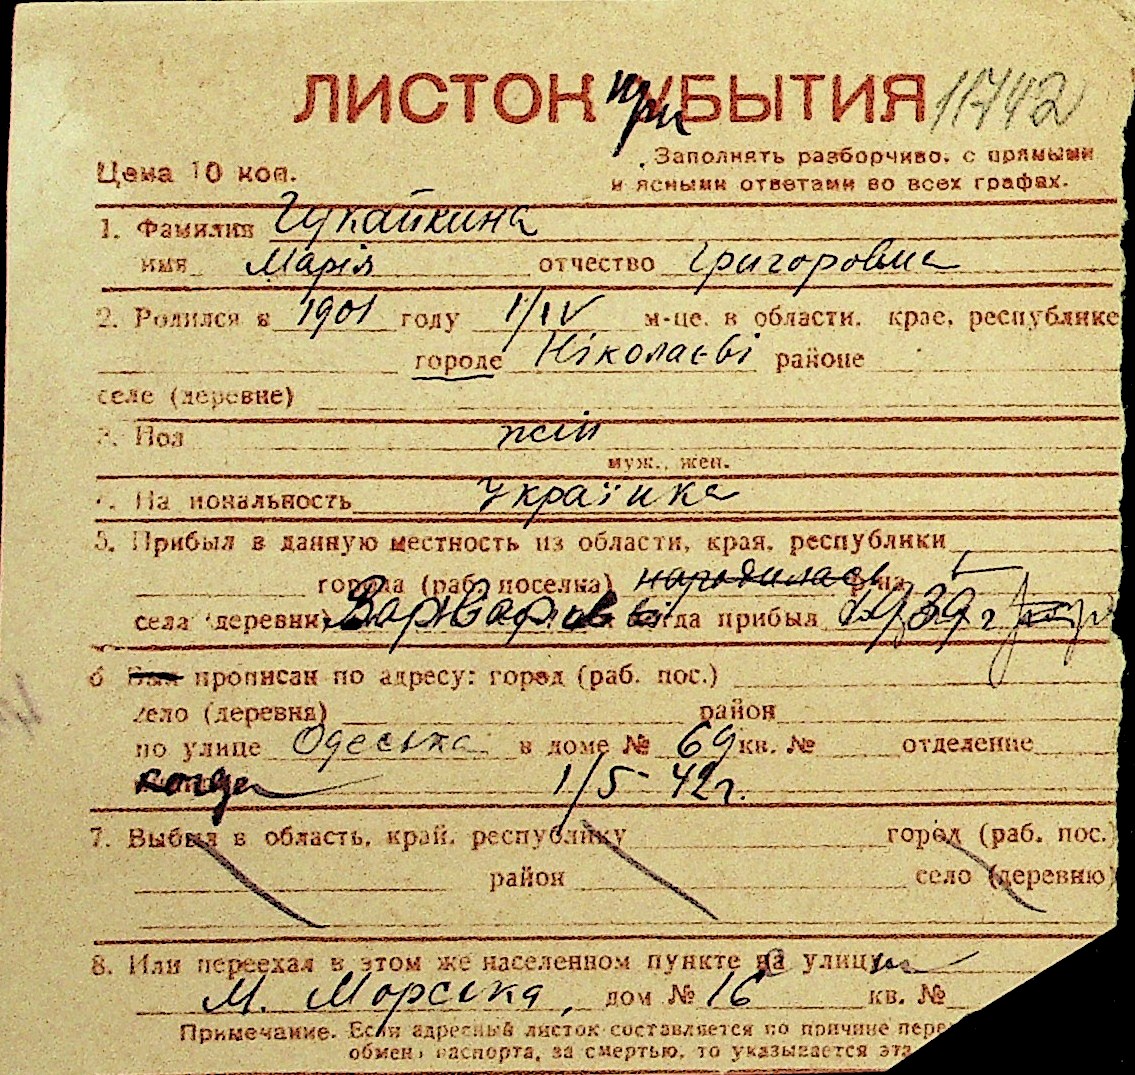 ЛИСТОК при УБЫТИЯ 11742
Цена 10 коп.
Заполнять разборчиво, с прямыми
и ясными ответами во всех графах.
1. Фамилия Чукайкина
имя Марія отчество Григоровна
2. Родился в 1901 году 1/IV м-це. в области, крае, республике
городе Ніколаєві районе
селе (деревне)
3. Пол жін
муж., жен.
4. Национальность Українка
5. Прибыл в данную местность из области, края, республики
города (раб. поселка) народилась р-на
села (деревни) Варварові когда прибыл 1939 г
6 Был прописан по адресу: город (раб. пос.)
село (деревня) район
по улице Одеська в доме № 69 кв. № отделение
когда 1/5-42г.
7. Выбыл в область, край, республику город (раб. пос.)
район село (деревню)
8. Или переехал в этом же населенном пункте на улицу
М. Морська, дом № 16 кв. №
Примечание. Если адресный листок составляется по причине
обмена паспорта, за смертью, то указывается эта